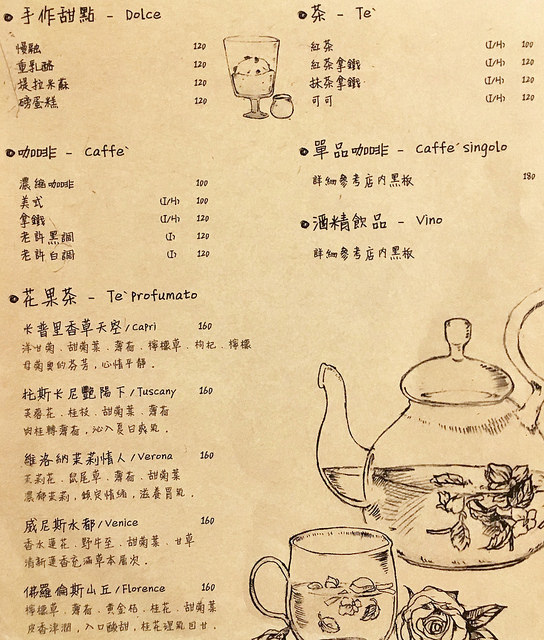 手作甜點 - Dolce
慢融 120
重乳酪 120
堤拉米蘇 120
磅蛋糕 120
茶 - Te`
紅茶 (I/H) 100
紅茶拿鐵 (I/H) 120
抹茶拿鐵 (I/H) 120
可可 (I/H) 120
咖啡 - Caffe`
濃縮咖啡 100
美式 (I/H) 100
拿鐵 (I/H) 120
老許黑調 (I) 120
老許白調 (I) 120
單品咖啡 - Caffe´singolo
詳細參考店內黑板 180
酒精飲品 - Vino
詳細參考店內黑板
花果茶 - Te`Profumato
卡普里香草天堂/Capri 160
洋甘菊．甜菊葉．薄荷．檸檬草．枸杞．檸檬
的芬芳，心情平靜。
托斯卡尼艷陽下/Tuscany 160
芙蓉花．桂枝．甜菊葉．薄荷
肉桂轉薄荷，沁入夏日暑氣。
維洛納茉莉情人/Verona 160
茉莉花．鼠尾草．薄荷．甜菊葉
濃郁茉莉，情緒，滋養胃氣。
威尼斯水都/Venice 160
香水蓮花．野牛至．甜菊葉．甘草
清新蓮香充滿草本層次。
佛羅倫斯山丘/Florence 160
檸檬草．薄荷．黃金桔．桂花．甜菊葉
津潤，入口酸甜，桂花理氣回甘。